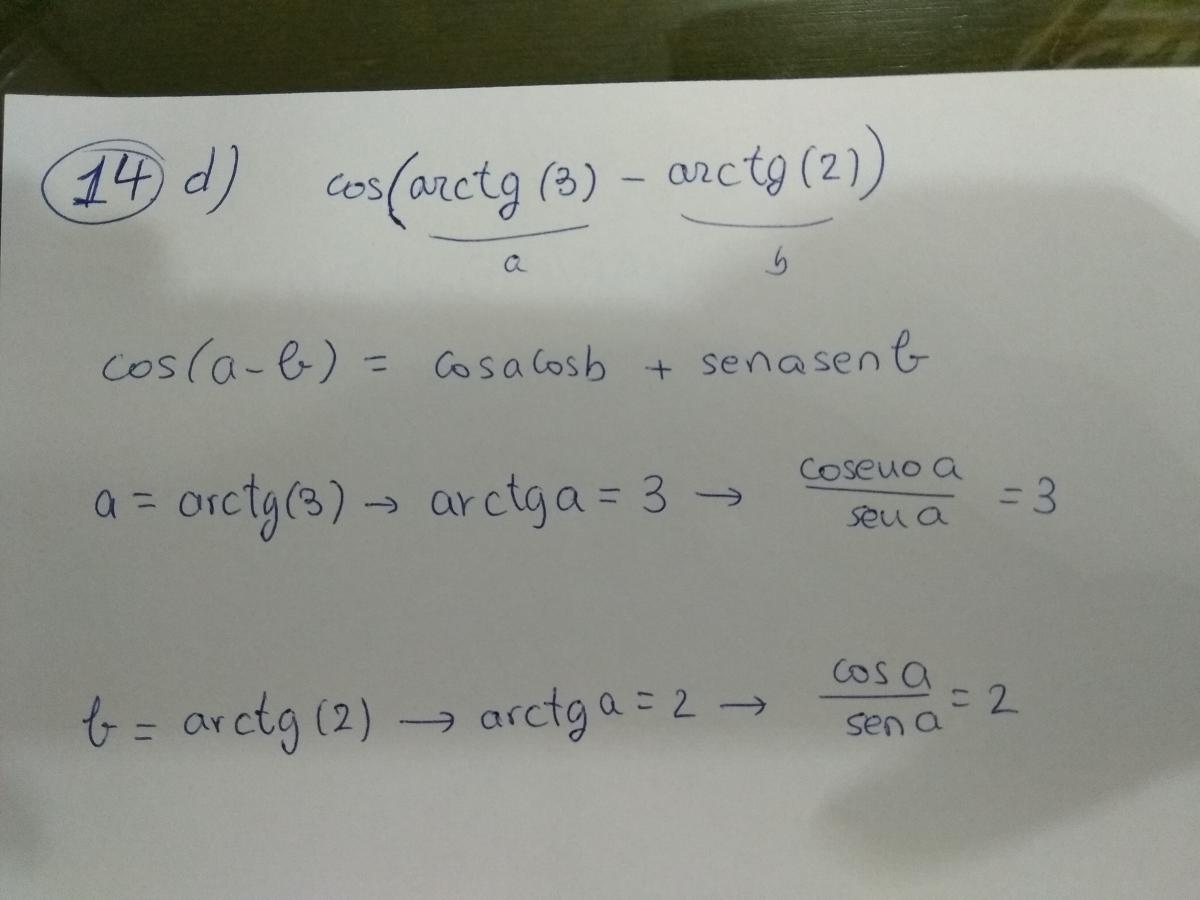 14 d) cos(arctg(3) - arctg(2))
a b
cos(a-b) = cosacosb + senasenb
a = arctg(3) → arctg a = 3 → coseno a / sen a = 3
b = arctg(2) → arctg a = 2 → cos a / sen a = 2